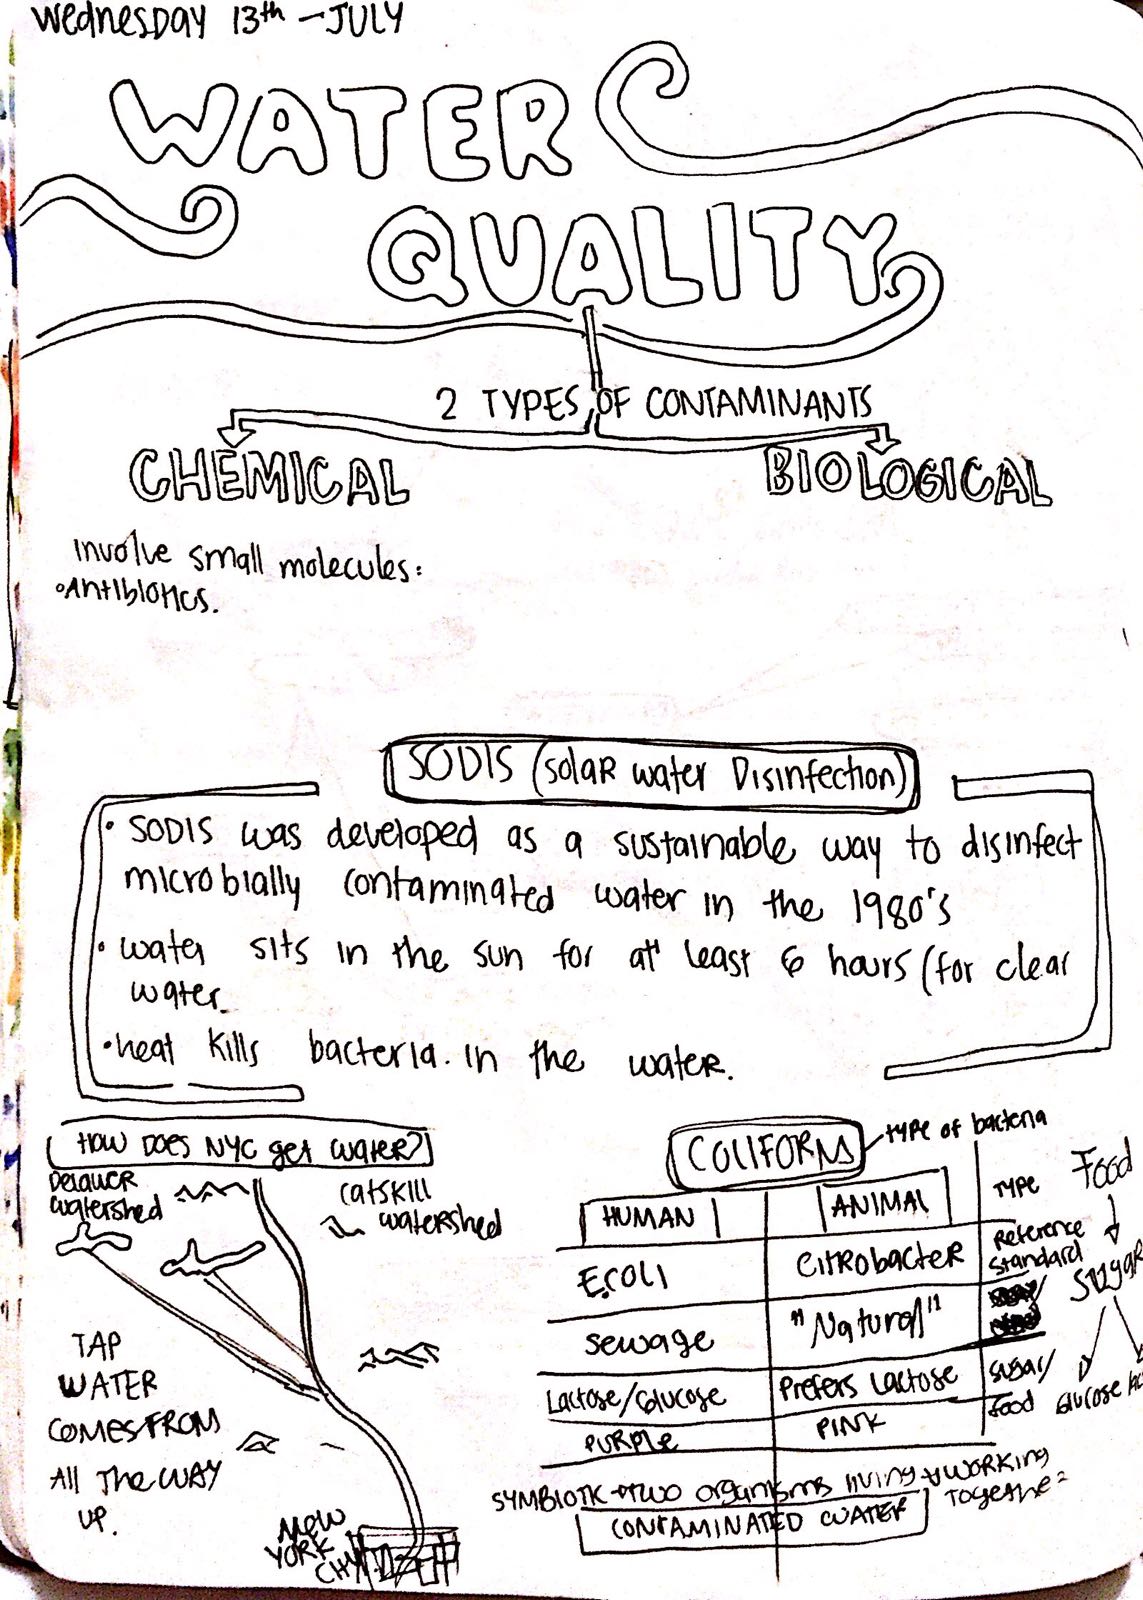 Wednesday 13th - JULY
WATER
QUALITY
2 TYPES OF CONTAMINANTS
CHEMICAL
BIOLOGICAL
involve small molecules:
Antibiotics.
SODIS (Solar water Disinfection)
• SODIS was developed as a sustainable way to disinfect
microbially contaminated water in the 1980's
• water sits in the sun for at least 6 hours (for clear
water.
• heat kills bacteria. in the water.
How DOES NYC get water?
watershed
Catskill
watershed
TAP
WATER
COMES FROM
All THE WAY
UP.
NEW
YORK
CITY
COLIFORM
type of bacteria
HUMAN
ANIMAL
TYPE
E.COLI
CITRobacteR
Reference
Standard
sewage
"Natural"
Lactose/Glucose
Prefers Lactose
sugar/
food
PURPLE
PINK
Food
Sugar
Glucose
SYMBIOTIC → two organisms living & working
CONTAMINATED WATER